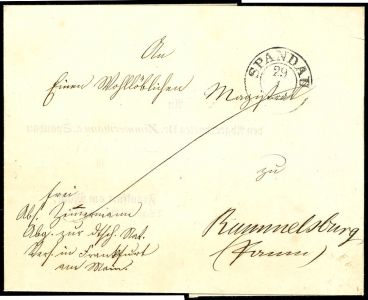 An
SPANDAU
29
Einen Wohllöblichen Magistrat,
zu
frei
Abs. Zimmermann
Abg. zur dtsch. Nat.
Vers. in Frankfurt
am Main
Rummelsburg
(Pomm)